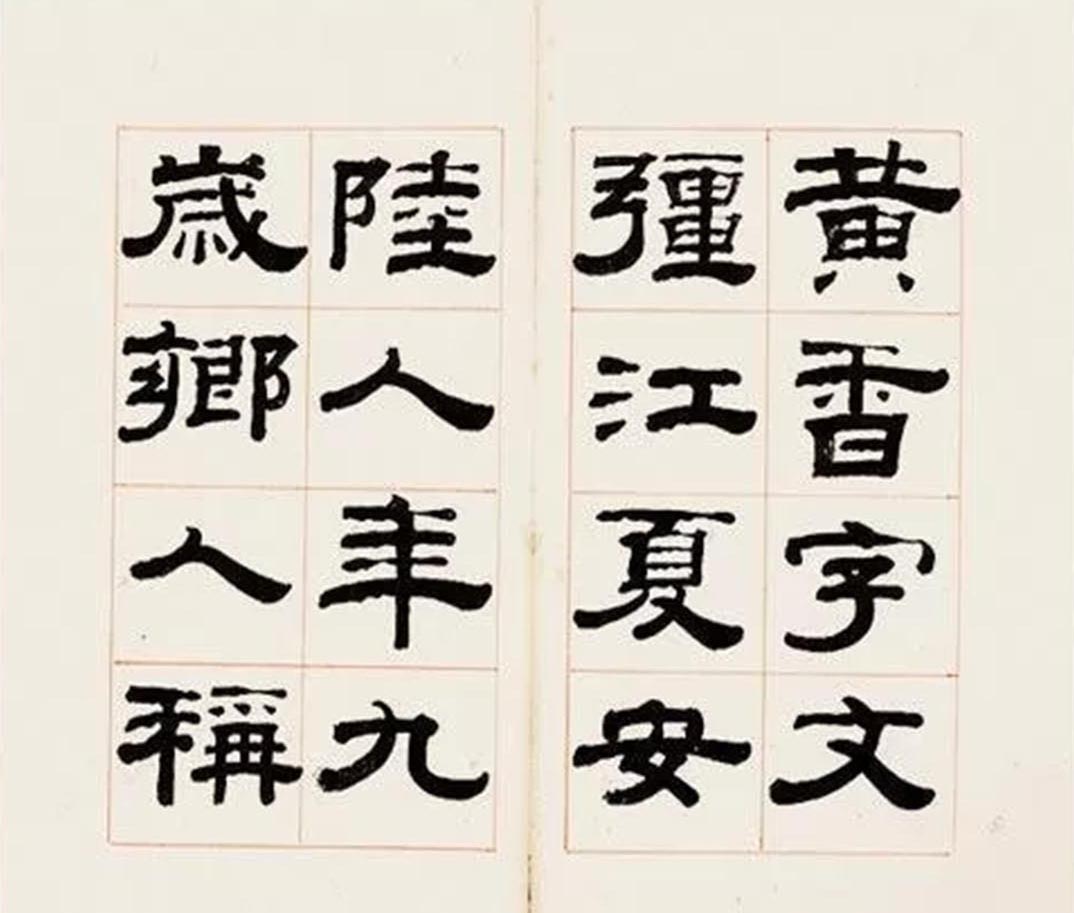 黄香字文
彊江夏安
陸人年九
歲鄉人稱